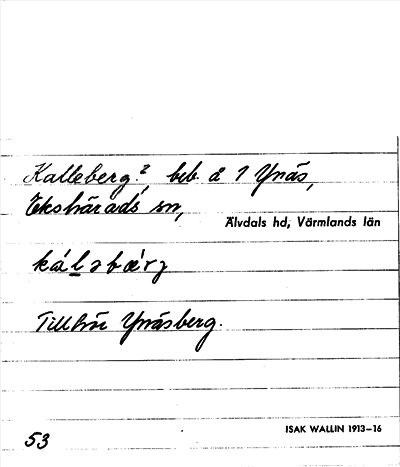 Kalleberg.², beb. å 1 Ynäs,
Ekshärads sn,
Älvdals hd, Värmlands län
ká̀l̲əbæ̀rj
Tillhör Ynäsberg.
ISAK WALLIN 1913–16
53